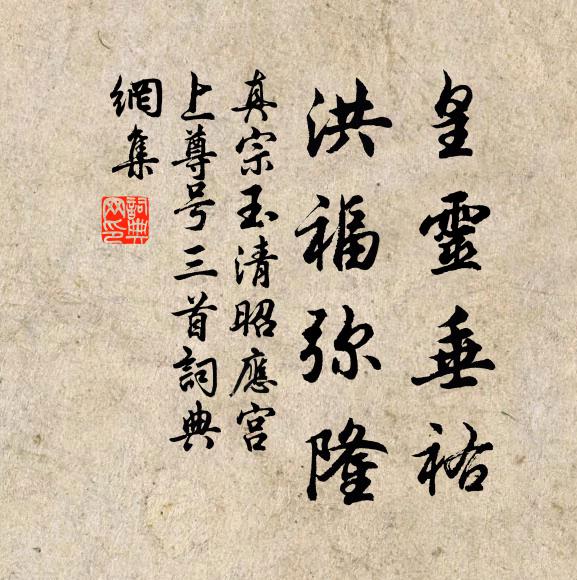 皇靈垂祐
洪福弥隆
真宗玉清昭應宮
上尊号三首詞典
網集
詞典
网印